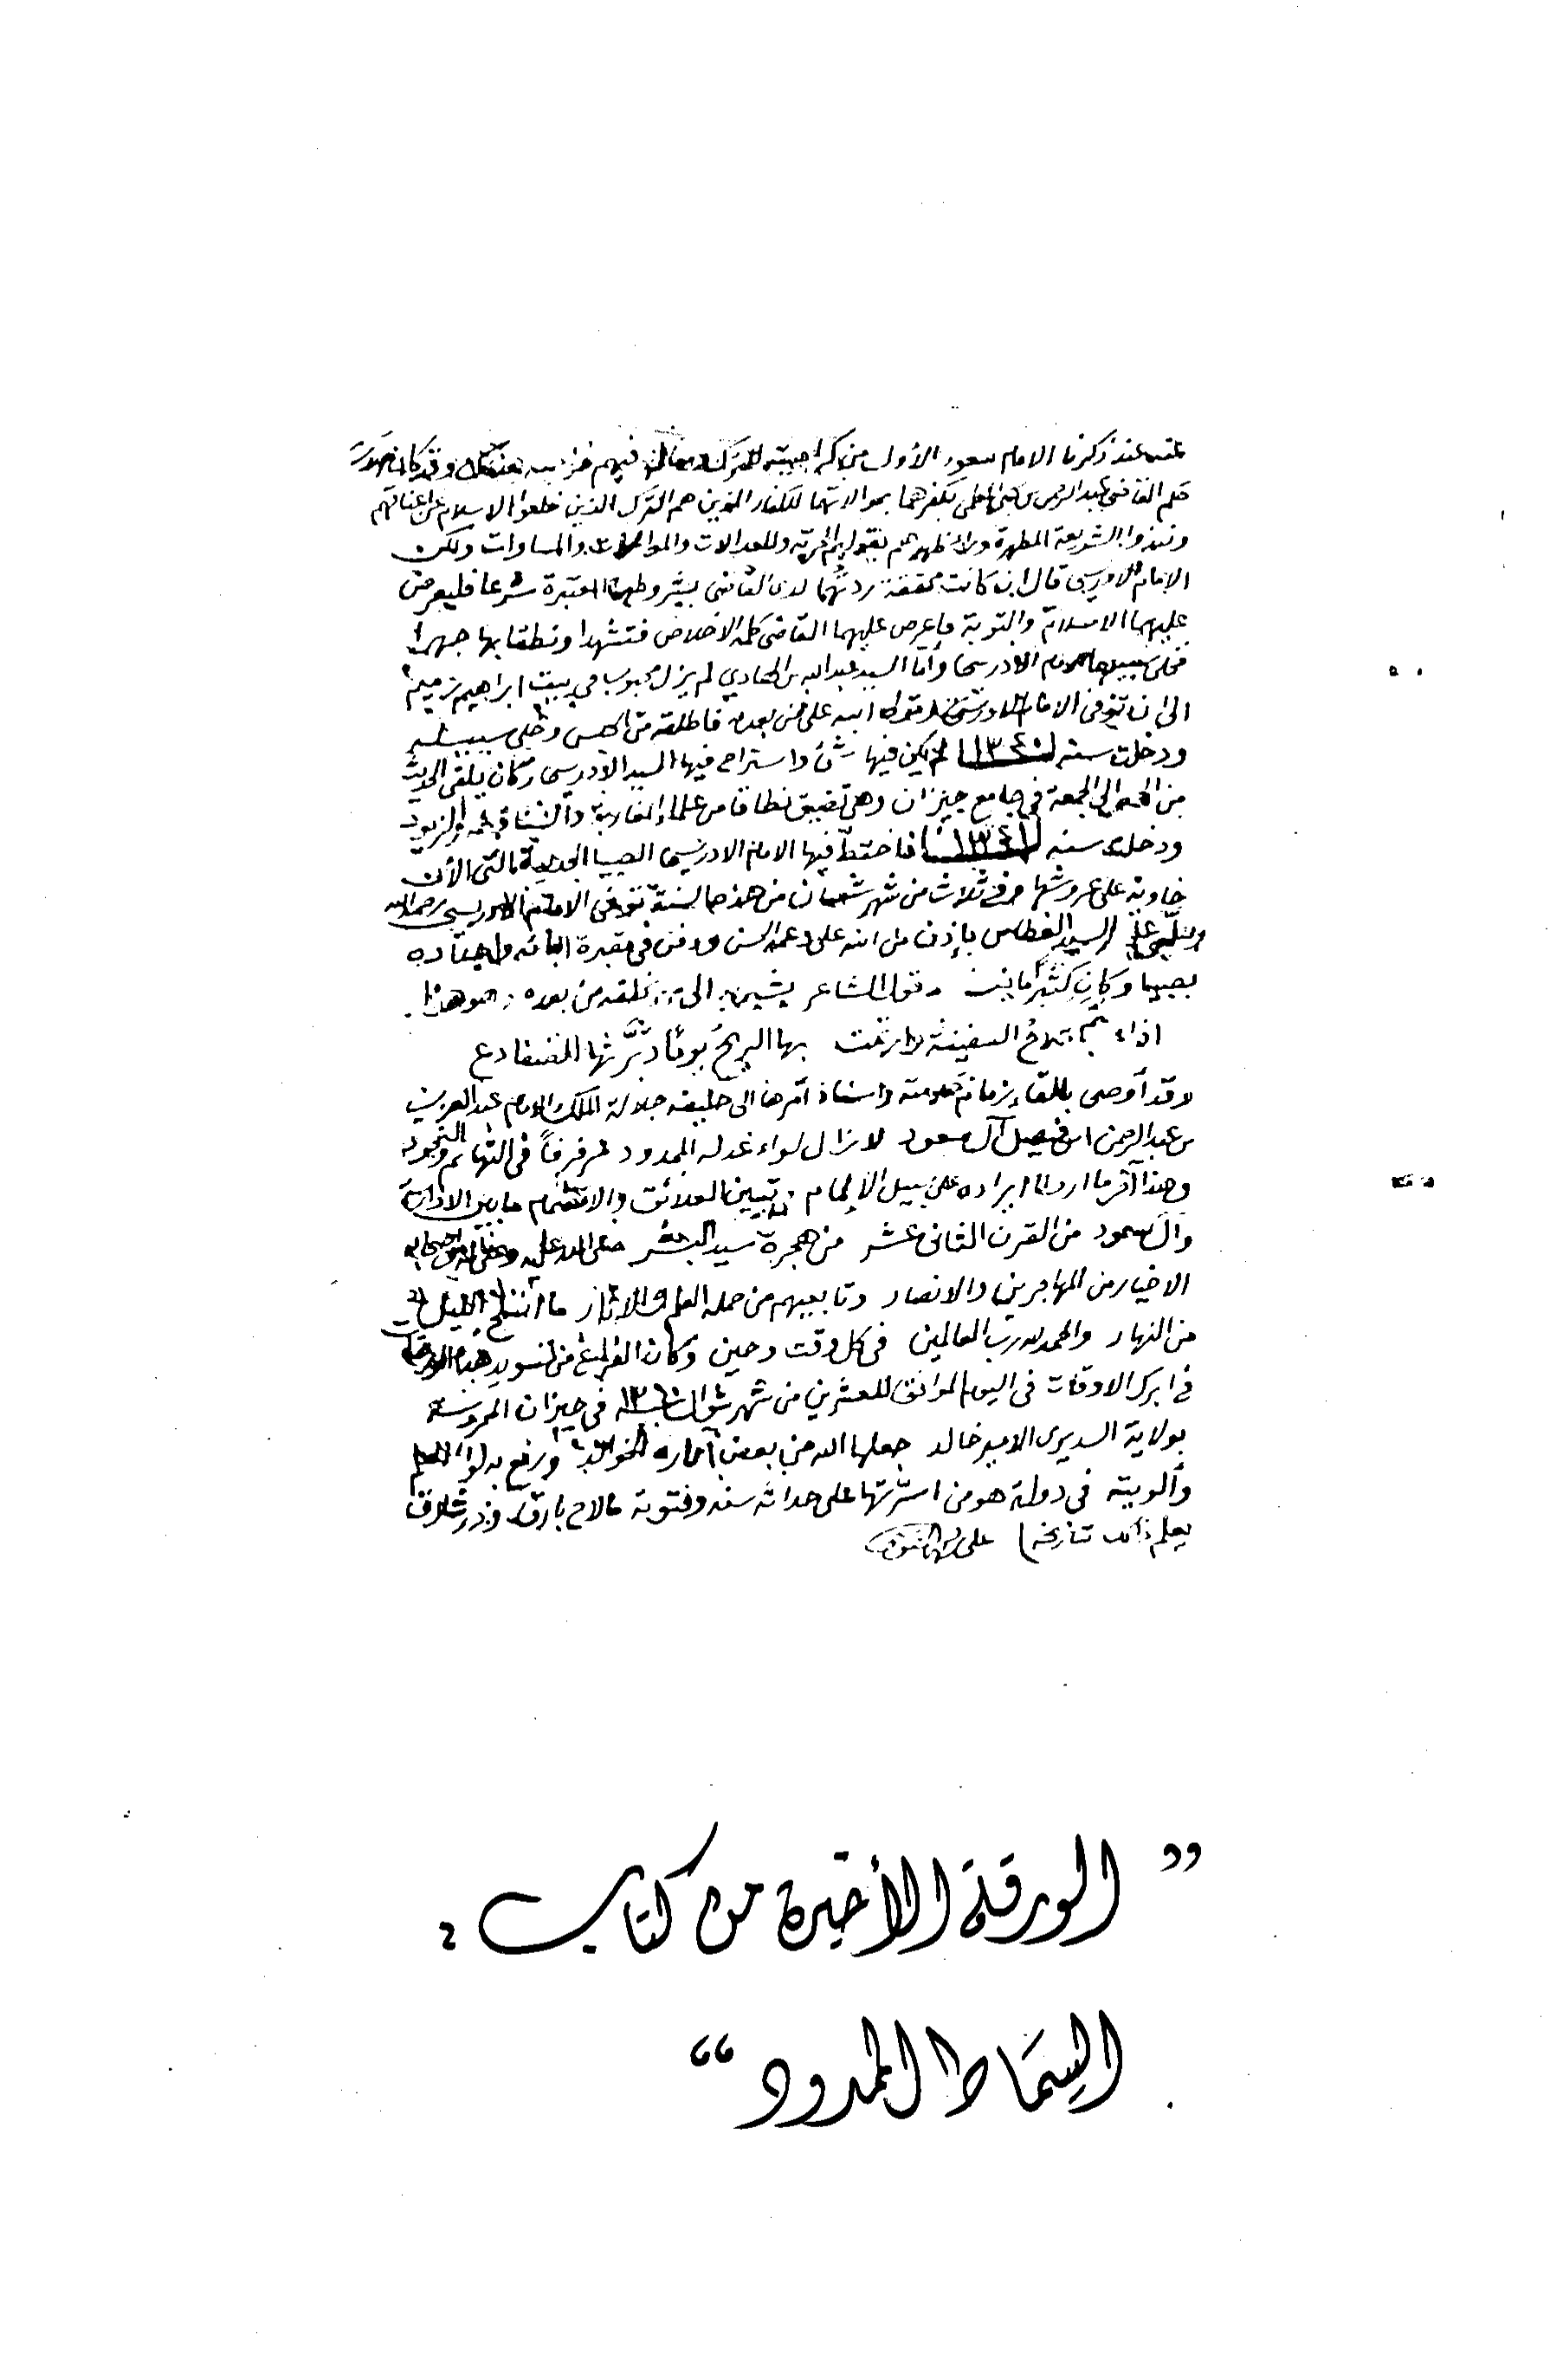 عنه عند ذكرنا الامام سعود الأول من كراهيته للترك فيهم وقد كان صدر
حكم القاضي عبد الرحمن بكفرهما بموالاتهما للكفار الذين هم الترك الذين خلعوا الاسلام عن اعناقهم
ونبذوا الشريعة المطهرة وراء ظهورهم بقولهم الحرية والعدالات والمساوات ولكن
الامام الادريسي قال ان كانت محققة ردتهما لدى القاضي بشروطها المعتبرة شرعا فليعرض
عليهما الاسلام والتوبة فاعرض عليهما القاضي كلمة الاخلاص فتشهدا ونطقا بها جهرا
فخلى سبيلهما الامام الادريسي وأما السيد عبد الله بن الهادي لم يزل محبوسا في بيت ابراهيم زميم
الى ان توفى الامام الادريسي وتولى ابنه علي من بعده فاطلقه من الحبس وخلى سبيله
ودخلت سنة ١٣٤٠ لم يكن فيها شئ واستراح فيها السيد الادريسي وكان يلقي الحديث
من الجمعة الى الجمعة في جامع جيزان وهي تضيق نطاقا من علماء المغاربة
ودخلت سنة ١٣٤١ فاختط فيها الامام الادريسي الصبيا الجديدة التي الأن
خاوية على عروشها وفي ثلاث من شهر شعبان من هذه السنة توفى الامام الادريسي رحمه الله
وصلى عليه السيد الغطاس بإذن من ابنه علي وعمه الحسن ودفن في مقبرة ابائه واجداده
بصبيا وكان كثيرا ما ينشد قول الشاعر يشير به الى من يخلفه من بعده وهو هذا
اذا تم ملاح السفينة وارتمت بها الريح يوما دبرتها الضفادع
وقد أوصى بالقاء زمام حكومته واسناد أمرها الى حليفه جلالة الملك الامام عبد العزيز
بن عبد الرحمن ابن فيصل آل سعود لازال لواء عدله الممدود مرفرفاً في التهائم والنجود
وهذا آخر ما اردنا ايراده على سبيل الإلمام وتبيين العلائق والانتقام ما بين الادارسة
وآل سعود من القرن الثاني عشر من هجرة سيد البشر صلى الله عليه وعلى آله واصحابه
الاخيار من المهاجرين والانصار وتابعيهم من حملة العلم والاثار ما انسلخ الليل
من النهار والحمد لله رب العالمين في كل وقت وحين وكان الفراغ من تسويد هذه الورقات
في ابرك الاوقات في اليوم الموافق للعشرين من شهر شوال سنة في جيزان المحروسة
بولاية السديري الامير خالد جعلها الله من بعض آثاره الخوالد ورفع به لواء العلم
وألويته في دولة هو من اسرتها على حداثة سنه وفتوته ما لاح بارق وذر شارق
يعلم ذلك تاريخه علي
” الورقة الأخيرة من كتاب :
السماط الممدود “